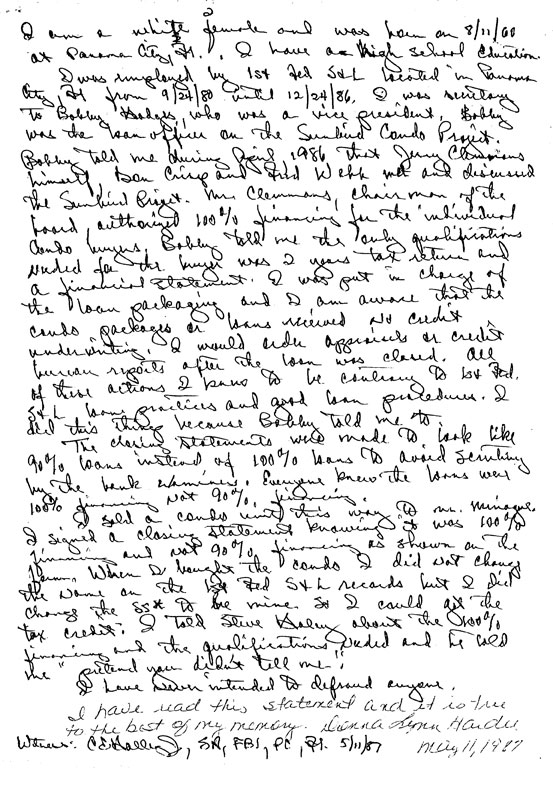 2
I am a white female and was born on 8/11/60
at Panama City, Fl. I have a high school education.
I was employed by 1st Fed S&L located in Panama
City, Fl from 9/24/80 until 12/24/86. I was secretary
to Bobby Hodges, who was a vice president. Bobby
was the loan officer on the Sunbird Condo Project.
Bobby told me during April, 1986 that Jerry Clemmons
himself, Dan Crisp and Fred Webb met and discussed
the Sunbird Project. Mr. Clemmons, chairman of the
board, authorized 100% financing for the individual
condo buyers. Bobby told me the only qualifications
needed for the buyer was 2 years tax return and
a financial statement. I was put in charge of
the loan packaging and I am aware that the
condo packages or loans received no credit
underwriting. I would order appraisals or credit
bureau reports after the loan was closed. All
of these actions I know to be contrary to 1st Fed.
S&L loans practices and good loan procedures. I
did this thing because Bobby told me to.
The closing statements were made to look like
90% loans instead of 100% loans to avoid scrutiny
by the bank examiners. Everyone knew the loans were
100% financing not 90% financing.
I sold a condo unit this way to Mr.
I signed a closing statement knowing it was 100%
financing and not 90% financing as shown on the
form. When I bought the condo I did not change
the name on the 1st Fed S&L records but I did
change the SS# to be mine so I could get the
tax credit. I told Steve about the 100%
financing and the qualifications needed and he told
me "pretend you didn't tell me".
I have never intended to defraud anyone.
I have read this statement and it is true
to the best of my memory. Donna Lynn Hardee
Witness: , SA, FBI, PC, Fl. 5/11/87 May 11, 1987